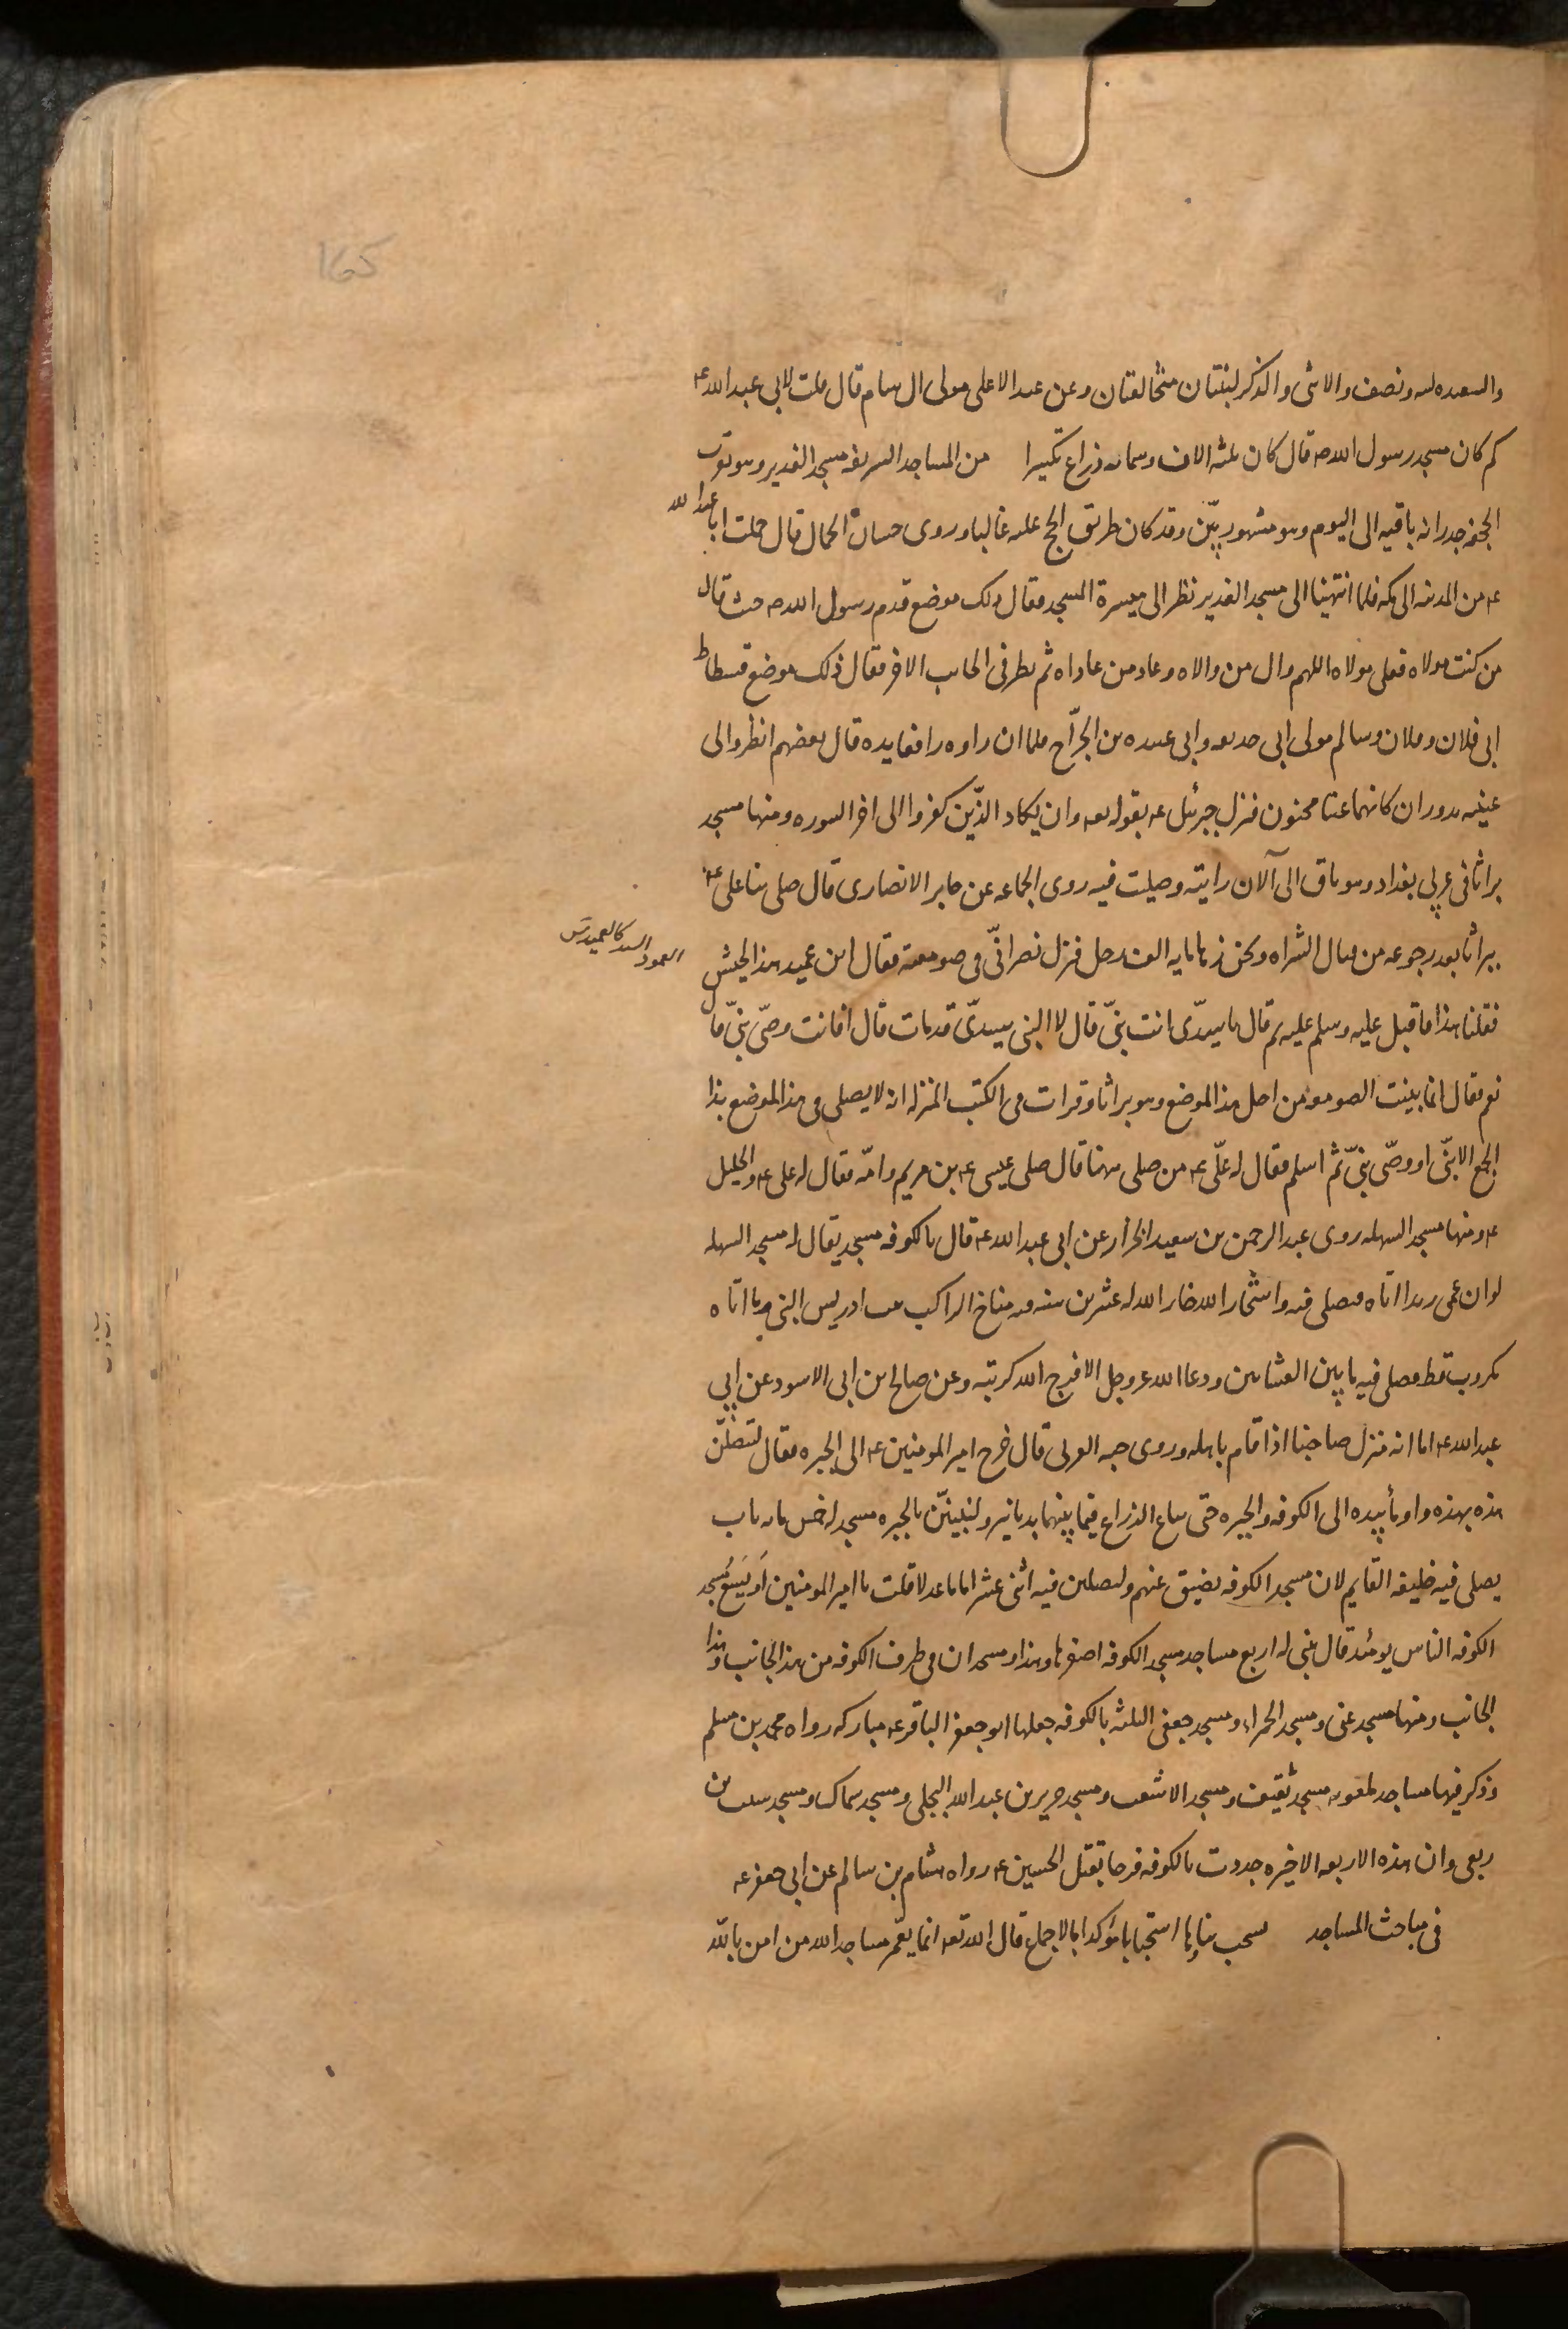 165
والسعيده لبنه ونصف والانثى والذكر لبنتان متخالفتان وعن عبد الاعلى مولى ال سام قال قلت لابي عبد الله ع
كم كان مسجد رسول الله ص قال كان ثلثه الاف وستمائه ذراع تكسيرا من المساجد الشريفه مسجد الغدير وهو بقرب
الجحفه جدرانه باقيه الى اليوم وهو مشهور بيّن وقد كان طريق الحج عليه غالبا وروى حسان الجمال قال حملت ابا عبد الله
ع من المدينه الى مكه فلما انتهينا الى مسجد الغدير نظر الى ميسرة المسجد فقال ذلك موضع قدم رسول الله ص حيث قال
من كنت مولاه فعلى مولاه اللهم وال من والاه وعاد من عاداه ثم نظر في الجانب الاخر فقال ذلك موضع فسطاط
ابى فلان وفلان وسالم مولى ابى حذيفه وابى عبيده بن الجرّاح فلما ان راوه رافعا يده قال بعضهم انظروا الى
عينيه تدوران كانهما عينا مجنون فنزل جبرئيل ع بقوله تعه وان يكاد الذّين كفروا الى اخر السوره ومنها مسجد
براثا فى غربى بغداد وهو باق الى الان رايته وصليت فيه روى الجماعه عن جابر الانصارى قال صلى بنا على ع
ببراثا بعد رجوعه من قتال الشراه ونحن زها مايه الف رجل فنزل نصرانّى من صومعته فقال اين عميد هذا الجيش
العمود السيد كالعميد ق
فقلنا هذا فاقبل عليه وسلم عليه ثم قال يا سيدّى انت نبىّ قال لا النبى سيدىّ قد مات قال افانت وصىّ نبىّ قال
نعم فقال انما بنيت الصومعه من اجل هذا الموضع وهو براثا وقرات فى الكتب المنزله انه لا يصلى فى هذا الموضع بذا
الجمع الا نبىّ او وصّى نبىّ ثم اسلم فقال له علّى ع من صلى ههنا قال صلى عيسى ع بن مريم وامّه فقال له على ع والخليل
ع ومنها مسجد السهله روى عبد الرحمن بن سعيد الخزاز عن ابى عبد الله ع قال بالكوفه مسجد يقال له مسجد السهله
لو ان عمى زيدا اتاه فصلى فيه واستجار الله جار الله له عشرين سنه فيه مناخ الراكب بيت ادريس النبى وما اتاه
مكروب قط فصلى فيه ما بين العشاءين ودعا الله عز وجل الا فرج الله كربته وعن صالح بن ابى الاسود عن ابى
عبد الله ع اما انه منزل صاحبنا اذا قام باهله وروى حبه العرنى قال خرج امير المومنين ع الى الحيره فقال لتصلنّ
هذه بهذه واومأ بيده الى الكوفه والحيره حتى يباع الذراع فيما بينهما بدنانير وليبنينّ بالحيره مسجد له خمس مائه باب
يصلى فيه خليفه القايم لان مسجد الكوفه يضيق عنهم وليصلين فيه اثنى عشر اماما عدلا قلت يا امير المومنين اَوَ يَسَعُ مسجد
الكوفه الناس يومئذ قال تبنى له اربع مساجد مسجد الكوفه اصغرها وهذا ومسجدان فى طرف الكوفه من هذا الجانب وهذا
الجانب ومنها مسجد غنى ومسجد الحمراء ومسجد جعفى الثلثه بالكوفه جعلها ابو جعفر الباقر ع مباركه رواه محمد بن مسلم
وذكر فيها مساجد ملعونه مسجد ثقيف ومسجد الاشعث ومسجد جرير بن عبد الله البجلى ومسجد سماك ومسجد شبث بن
ربعى وان هذه الاربعه الاخيره جددت بالكوفه فرحا بقتل الحسين ع رواه هشام بن سالم عن ابى جعفر ع
فى مباحث المساجد يستحب بناؤها استحبابا مؤكدا بالاجماع قال الله تعه انما يعمّر مساجد الله من امن بالله